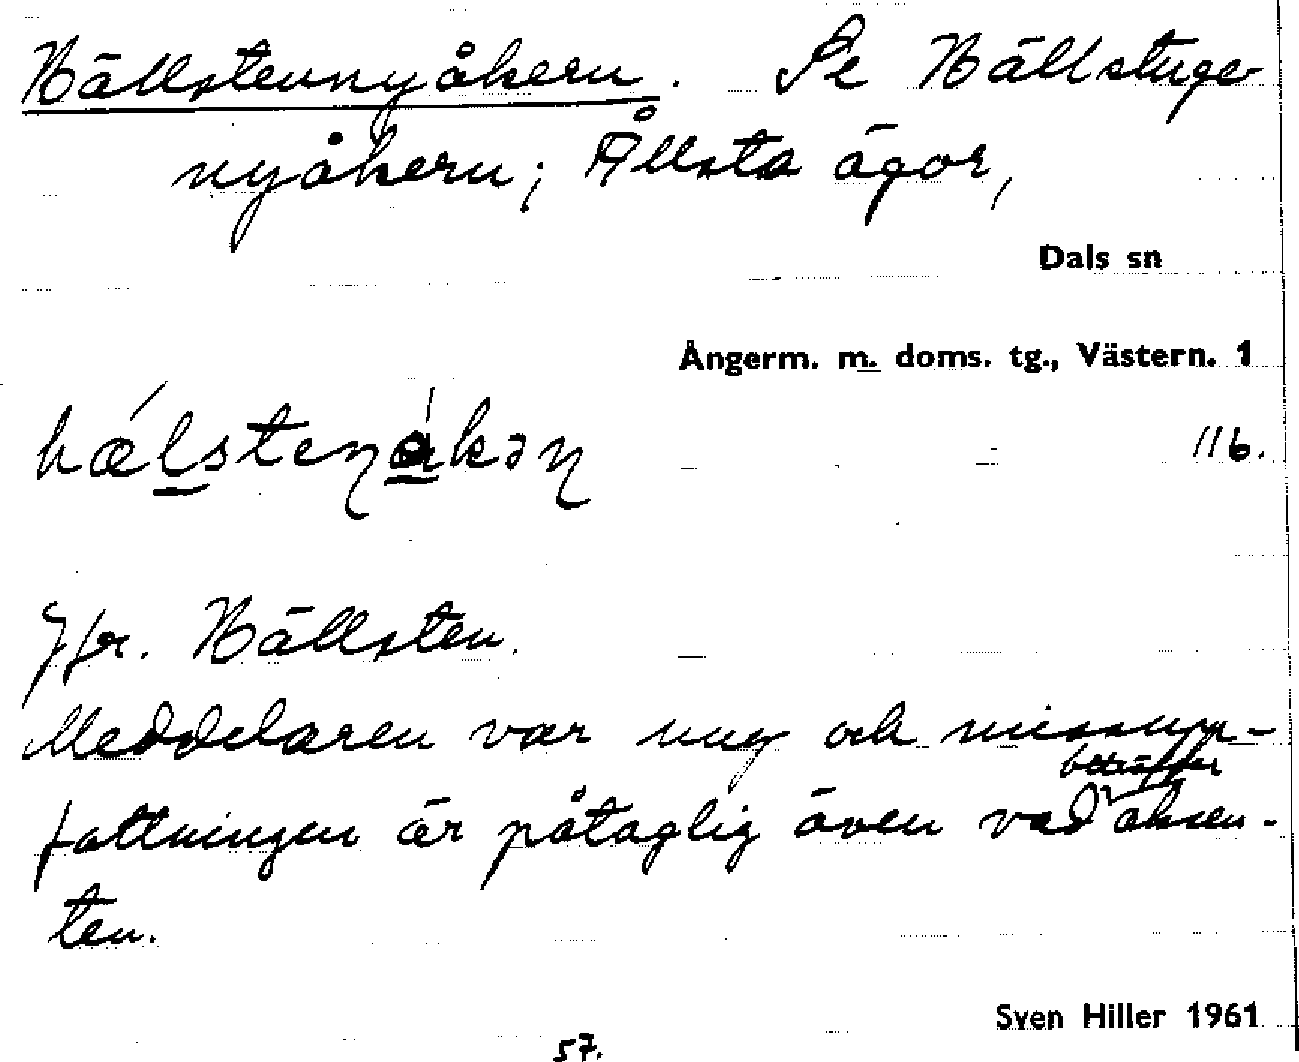 Hällstennyåkern. Se Hällstuge-
nyåkern; Ållsta ägor,
Dals sn
Ångerm. m. doms. tg., Västern. 1
116.
Jfr. Hällsten.
Meddelaren var ung och missupp-
beträffar
fattningen är påtaglig även vad aksen-
ten.
Sven Hiller 1961
57.